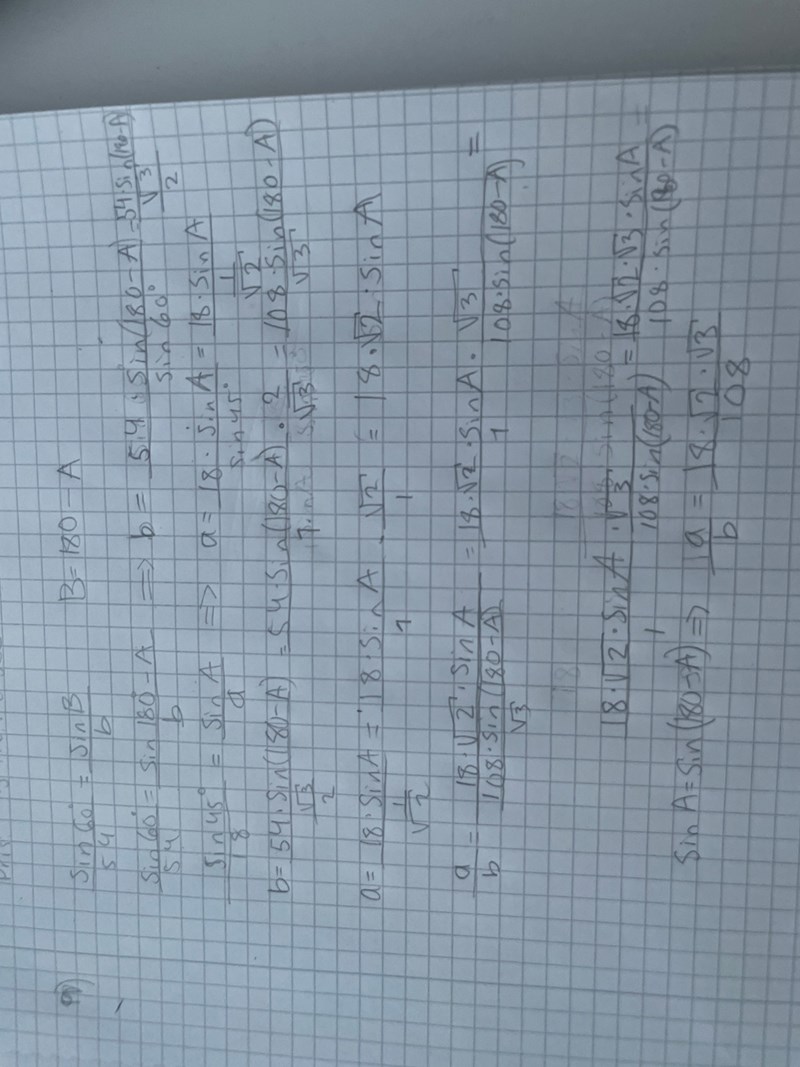 a) sin 60° / 54 = sin B / b B = 180 - A
sin 60° / 54 = sin 180 - A / b => b = 54 · sin(180 - A) / sin 60° = 54 · sin(180-A) / (√3 / 2)
sin 45° / 18 = sin A / a => a = 18 · sin A / sin 45° = 18 · sin A / (1 / √2)
b = 54 · sin(180-A) / (√3 / 2) = 54 sin(180-A) / 1 · 2 / √3 = 108 · sin(180-A) / √3
a = 18 · sin A / (1 / √2) = 18 · sin A / 1 · √2 / 1 = 18 · √2 · sin A
a / b = 18 · √2 · sin A / (108 · sin(180-A) / √3) = 18 · √2 · sin A / 1 · √3 / 108 · sin(180-A) =
18 · √2 · sin A / 1 · √3 / 108 · sin(180-A) = 18 · √2 · √3 · sin A / 108 · sin(180-A) =
sin A = sin(180-A) => a / b = 18 · √2 · √3 / 108